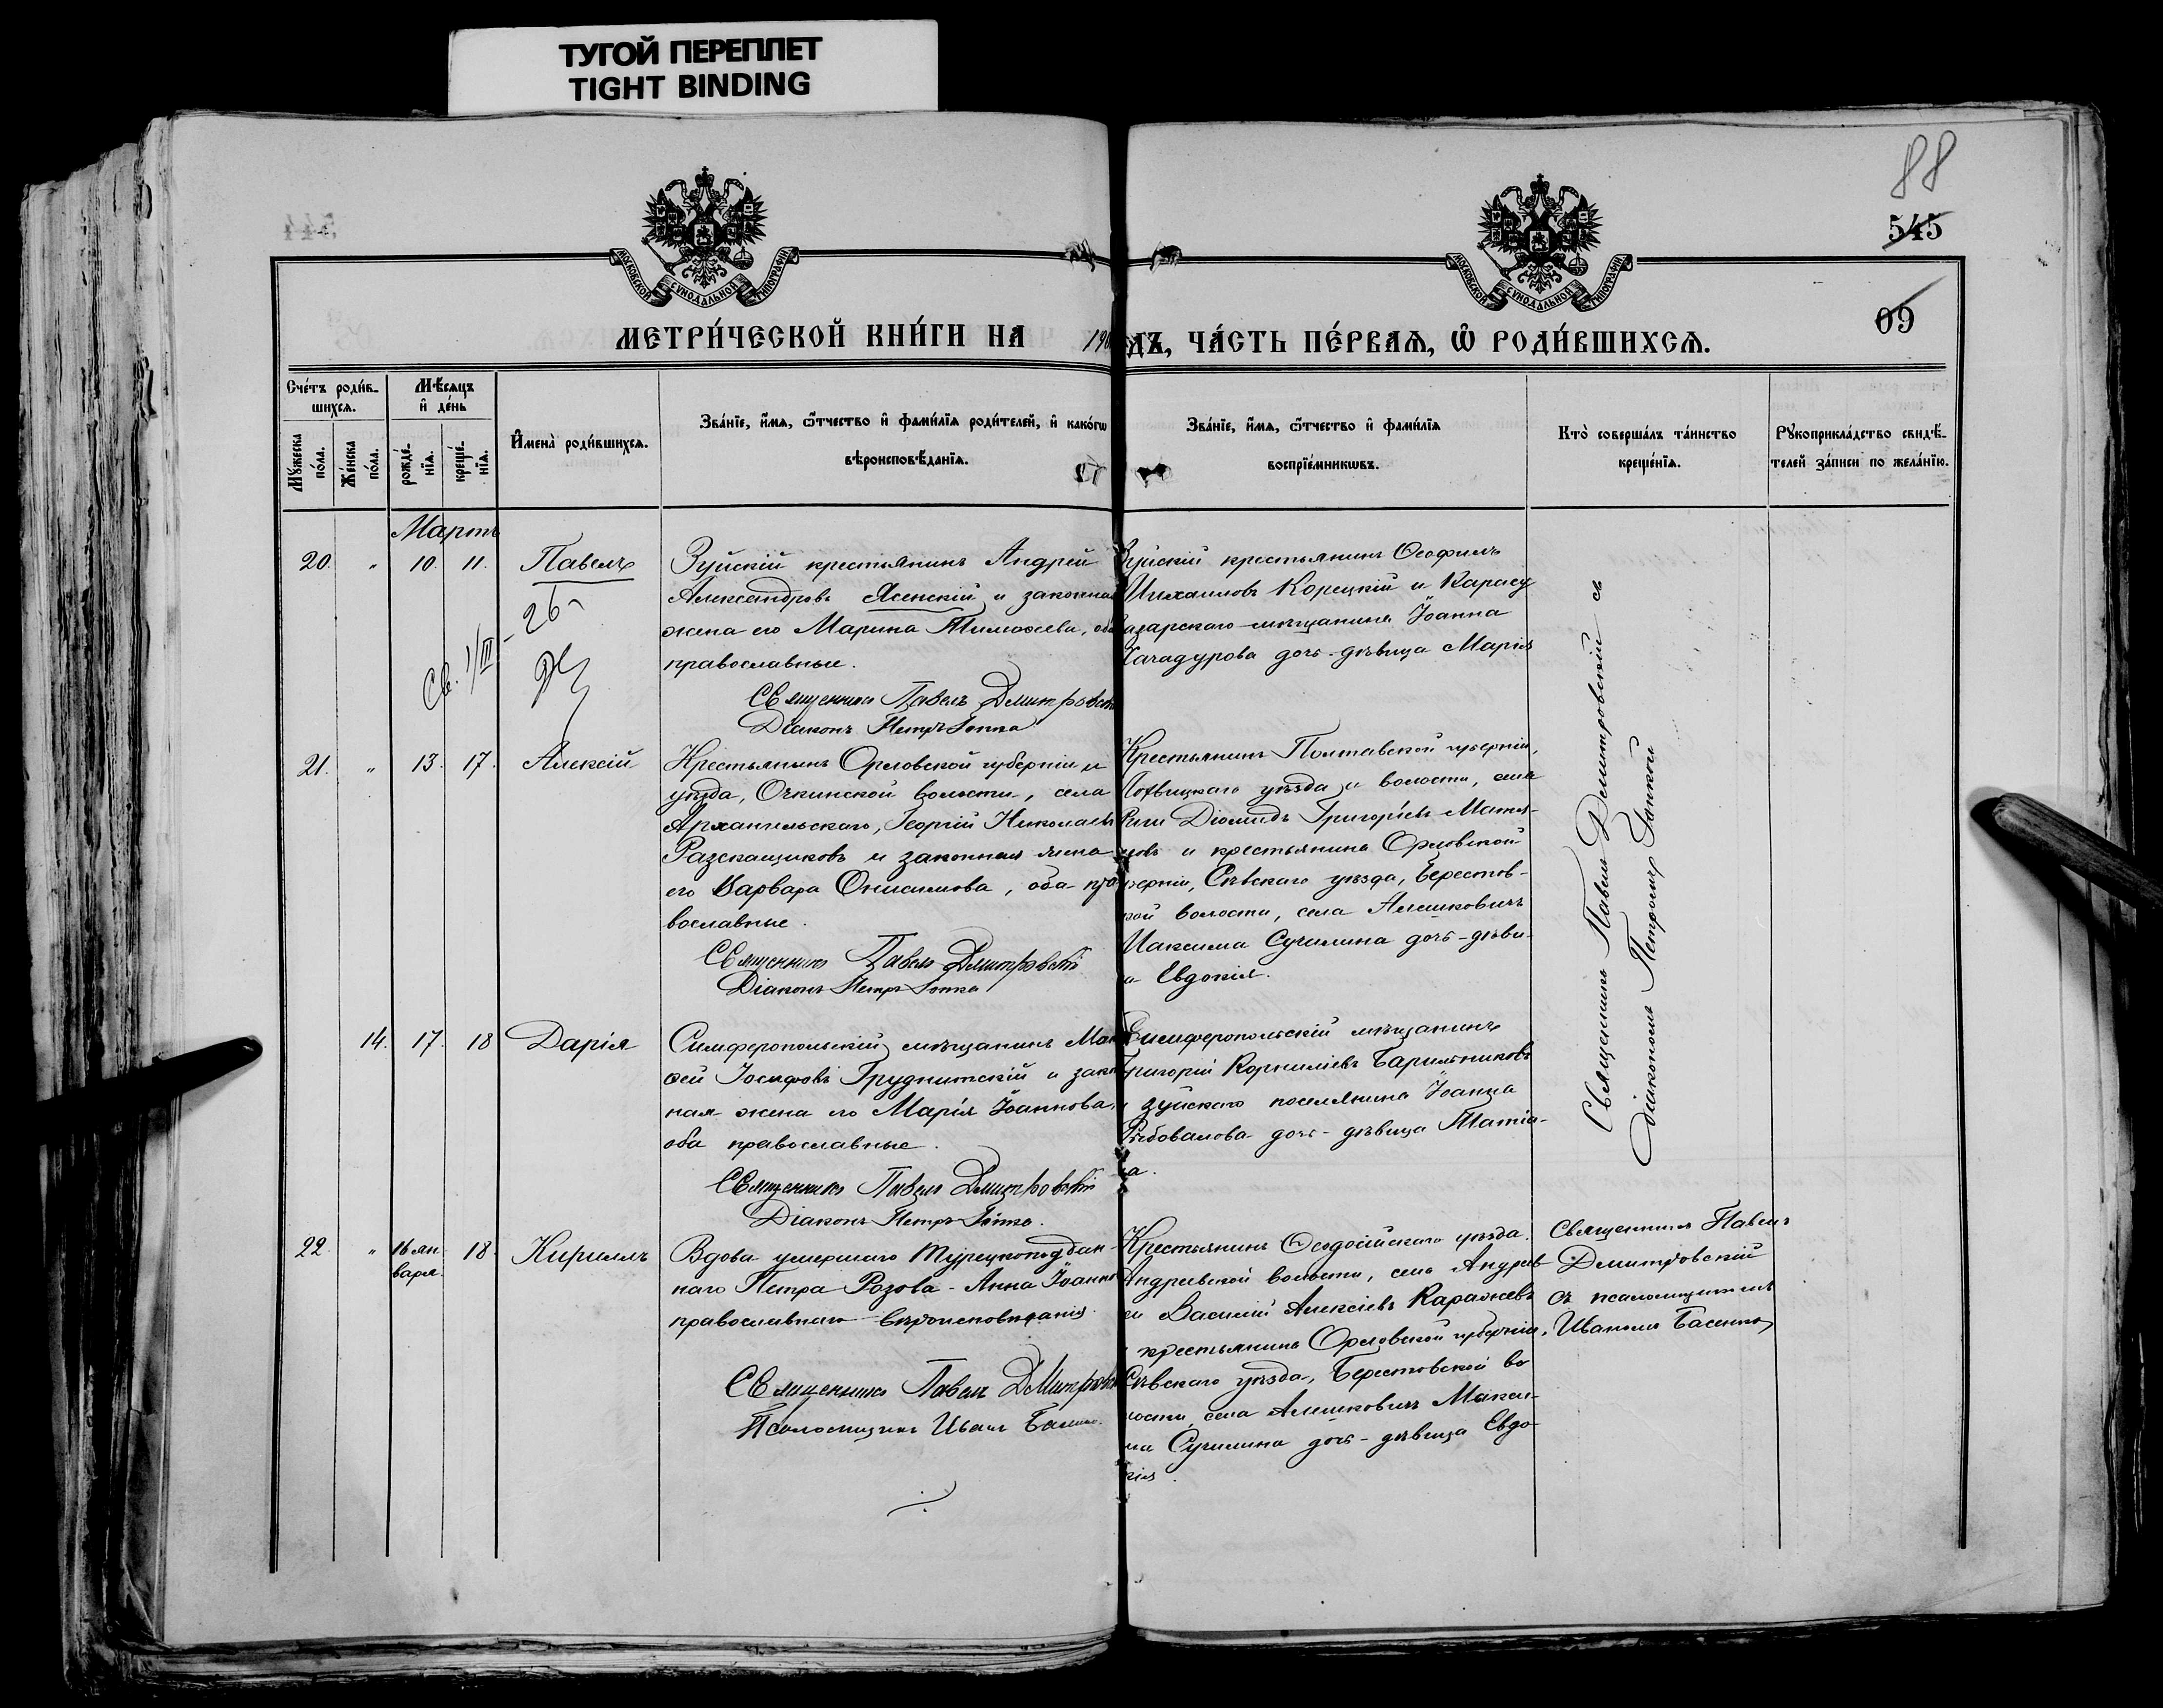 ТУГОЙ ПЕРЕПЛЕТ
TIGHT BINDING
88
545
09
МОСКОВСКОЙ СѴНОДАЛЬНОЙ ТИПОГРАФІИ
МОСКОВСКОЙ СѴНОДАЛЬНОЙ ТИПОГРАФІИ
МЕТРИ́ЧЕСКОЙ КНИ́ГИ НА 190
ДЪ, ЧА́СТЬ ПЕ́РВАѦ, Ѡ҆ РОДИ́ВШИХСѦ.
Сче́тъ роди́в-
шихсѧ.
Мꙋжеска по́ла.
Же́нска по́ла.
Мѣ́сѧцъ
и҆ де́нь
рожде́-
нїѧ.
креще́-
нїѧ.
И҆мена̀ роди́вшихсѧ.
Зва́нїе, и҆́мѧ, ѻ҆́тчество и҆ фами́лїѧ роди́телей, и҆ како́гѡ
вѣроисповѣ́данїѧ.
Зва́нїе, и҆́мѧ, ѻ҆́тчество и҆ фами́лїѧ
воспрїе́мникѡвъ.
Кто̀ соверша́лъ та́инство
креще́нїѧ.
Рꙋкоприкла́дство свидѣ́-
телей за́писи по жела́нїю.
Мартъ
20. " 10. 11. Павелъ
Зуйскій крестьянинъ Андрей
Александровъ Ясенскій и законная
жена его Марина Тимоѳеева, оба
православные.
Священникъ Павелъ Дмитровскій
Діаконъ Петръ
Св. 1/III
26
Зуйскій крестьянинъ Ѳеофилъ
Михаиловъ Корецкій и Карасу
базарскаго мѣщанина Іоанна
Хачадурова дочь-дѣвица Марія
21. " 13. 17. Алексій
Крестьянинъ Орловской губерніи и
уѣзда, Очкинской волости, села
Архангельскаго, Георгій Николаевъ
Разскащиковъ и законная жена
его Варвара Онисимова, оба пра
вославные.
Священникъ Павелъ Дмитровскій
Діаконъ Петръ
Крестьянинъ Полтавской губерніи,
Лохвицкаго уѣзда и волости, села
Діомидъ Григорьевъ
и крестьянина Орловской
губерніи, Сѣвскаго уѣзда, Берестов-
кой волости, села Алешковичъ
Максима Сучилина дочь-дѣви-
ца Евдокія.
Священникъ Павелъ Дмитровскій съ
діакономъ Петромъ
14. 17. 18 Дарія
Симферопольскій мѣщанинъ Мак
сей Іосифовъ Груднитскій и закон
ная жена его Марія Іоаннова,
оба православные.
Священникъ Павелъ Дмитровскій
Діаконъ Петръ
Симферопольскій мѣщанинъ
Григорій Корниліевъ Барильниковъ
и зуйскаго поселянина Іоанна
Рыбовалова дочь-дѣвица Татіа-
на.
22. " 16 ян 18. Кириллъ
варя.
Вдова умершаго Турецкоподдан-
наго Петра Розова - Анна Іоаннова
православнаго вѣроисповѣданія.
Священникъ Павелъ Дмитровскій
Псаломщикъ Иванъ Басенко.
Крестьянинъ Ѳеодосійскаго уѣзда.
Андреевской волости, села Андрее
Василій Алексіевъ Каражаевъ
и крестьянина Орловской губерніи,
Сѣвскаго уѣзда, Берестовской во
лости, села Алешковичъ Макси-
ма Сучилина дочь-дѣвица Евдо
кія.
Священникъ Павелъ
Дмитровскій
съ псаломщикомъ
Иваномъ Басенко